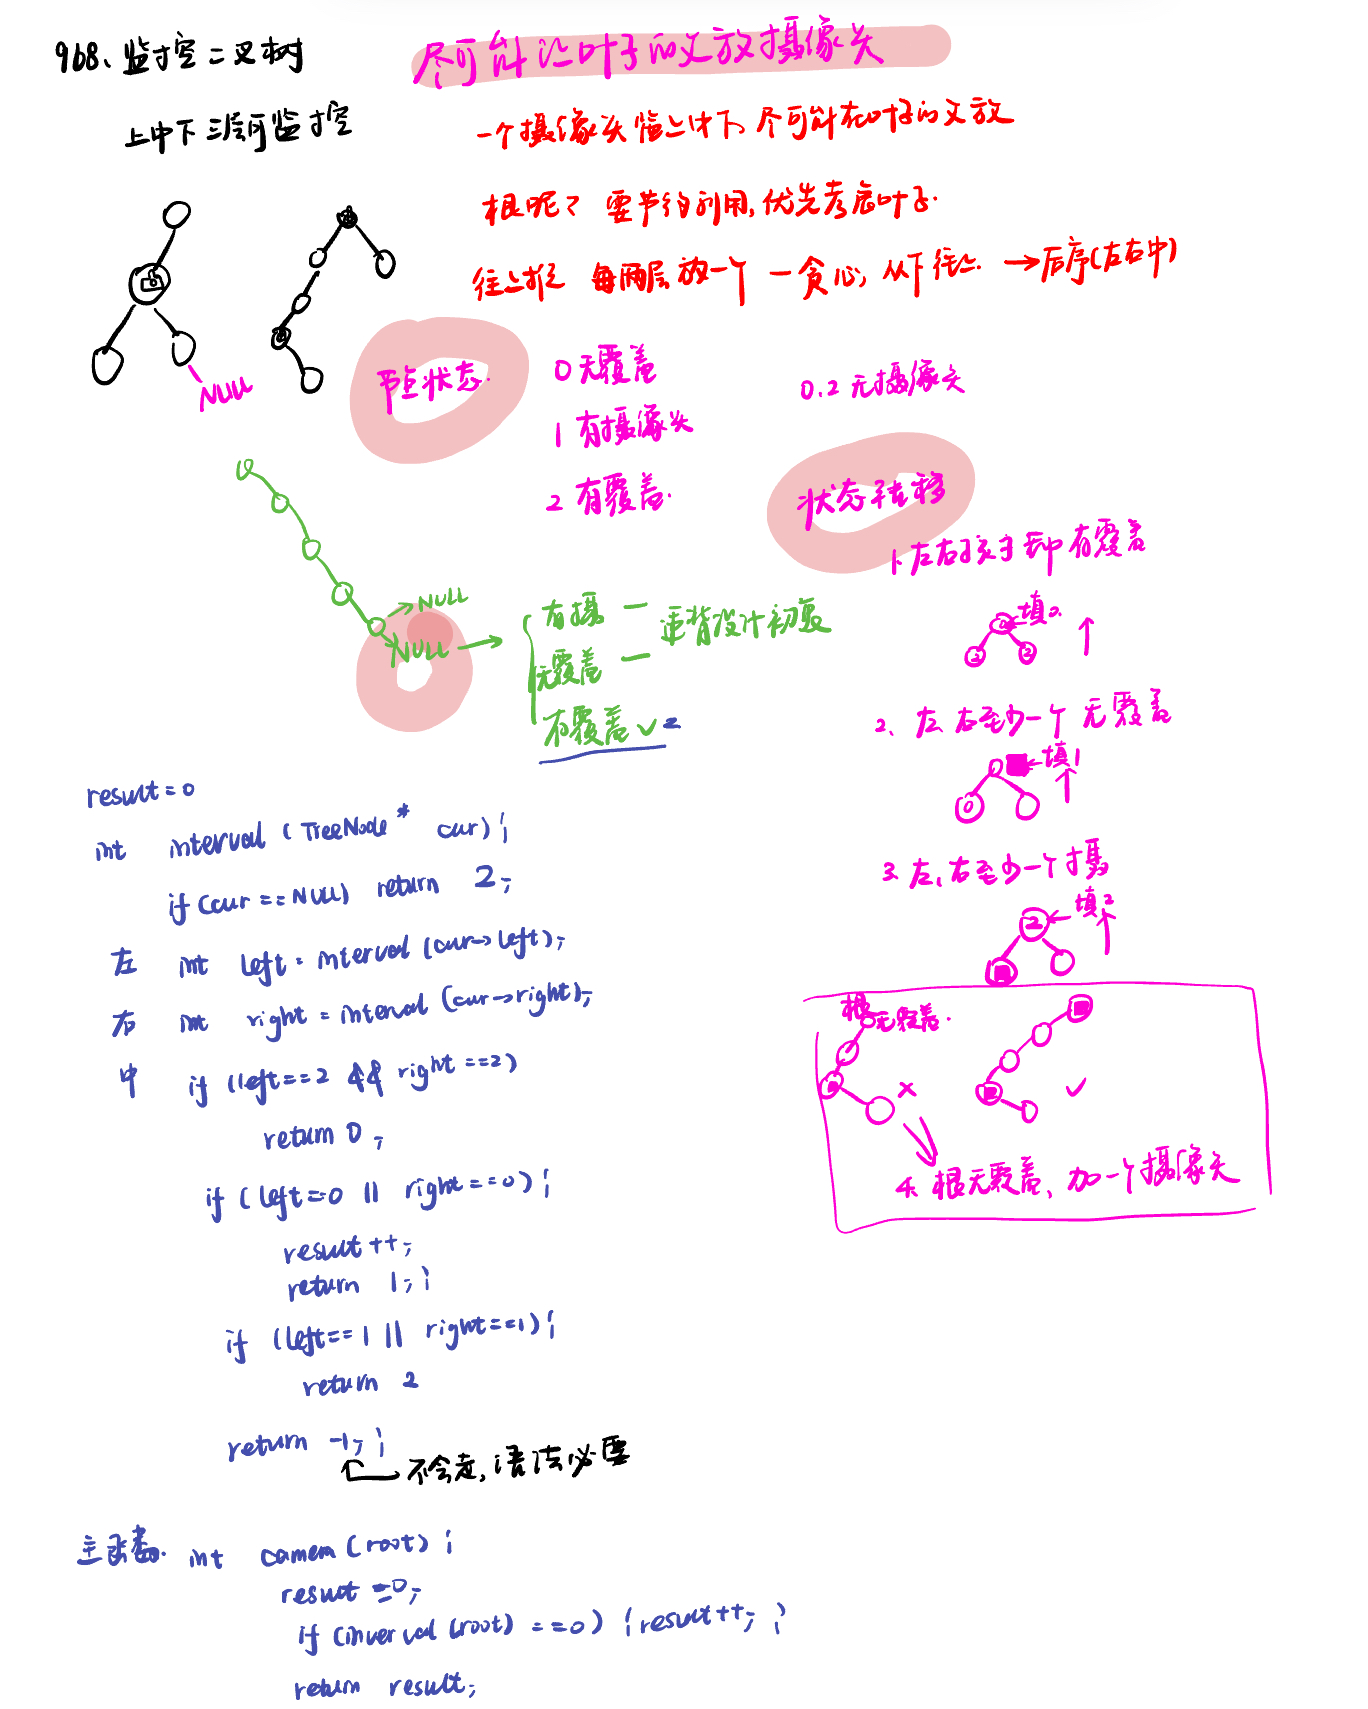 968、监控二叉树
尽可能让叶子的父放摄像头
上中下三层可监控
一个摄像头监上中下、尽可能在叶子的父放
根呢? 要节约利用,优先考虑叶子.
往上推 每两层放一个 — 贪心, 从下往上. → 后序(左右中)
NULL
节点状态.
0 无覆盖
1 有摄像头
2 有覆盖.
0.2 无摄像头
状态转移
1、左右孩子都有覆盖
填0.
2
2
NULL
NULL
有摄 —
无覆盖 —
违背设计初衷
有覆盖 ✓ 2
2、左、右至少一个 无覆盖
填1
0
3. 左、右至少一个摄
填2
2
根无覆盖.
×
✓
4. 根无覆盖、加一个摄像头
result = 0
int interval (TreeNode* cur) {
if (cur == NULL) return 2;
左 int left = interval (cur->left);
右 int right = interval (cur->right);
中 if (left==2 && right ==2)
return 0;
if (left==0 || right ==0) {
result ++;
return 1; }
if (left==1 || right==1) {
return 2
return -1; }
不会走, 语法必要
主函数. int camera (root) {
result =0;
if (interval (root) ==0) { result ++; }
return result;